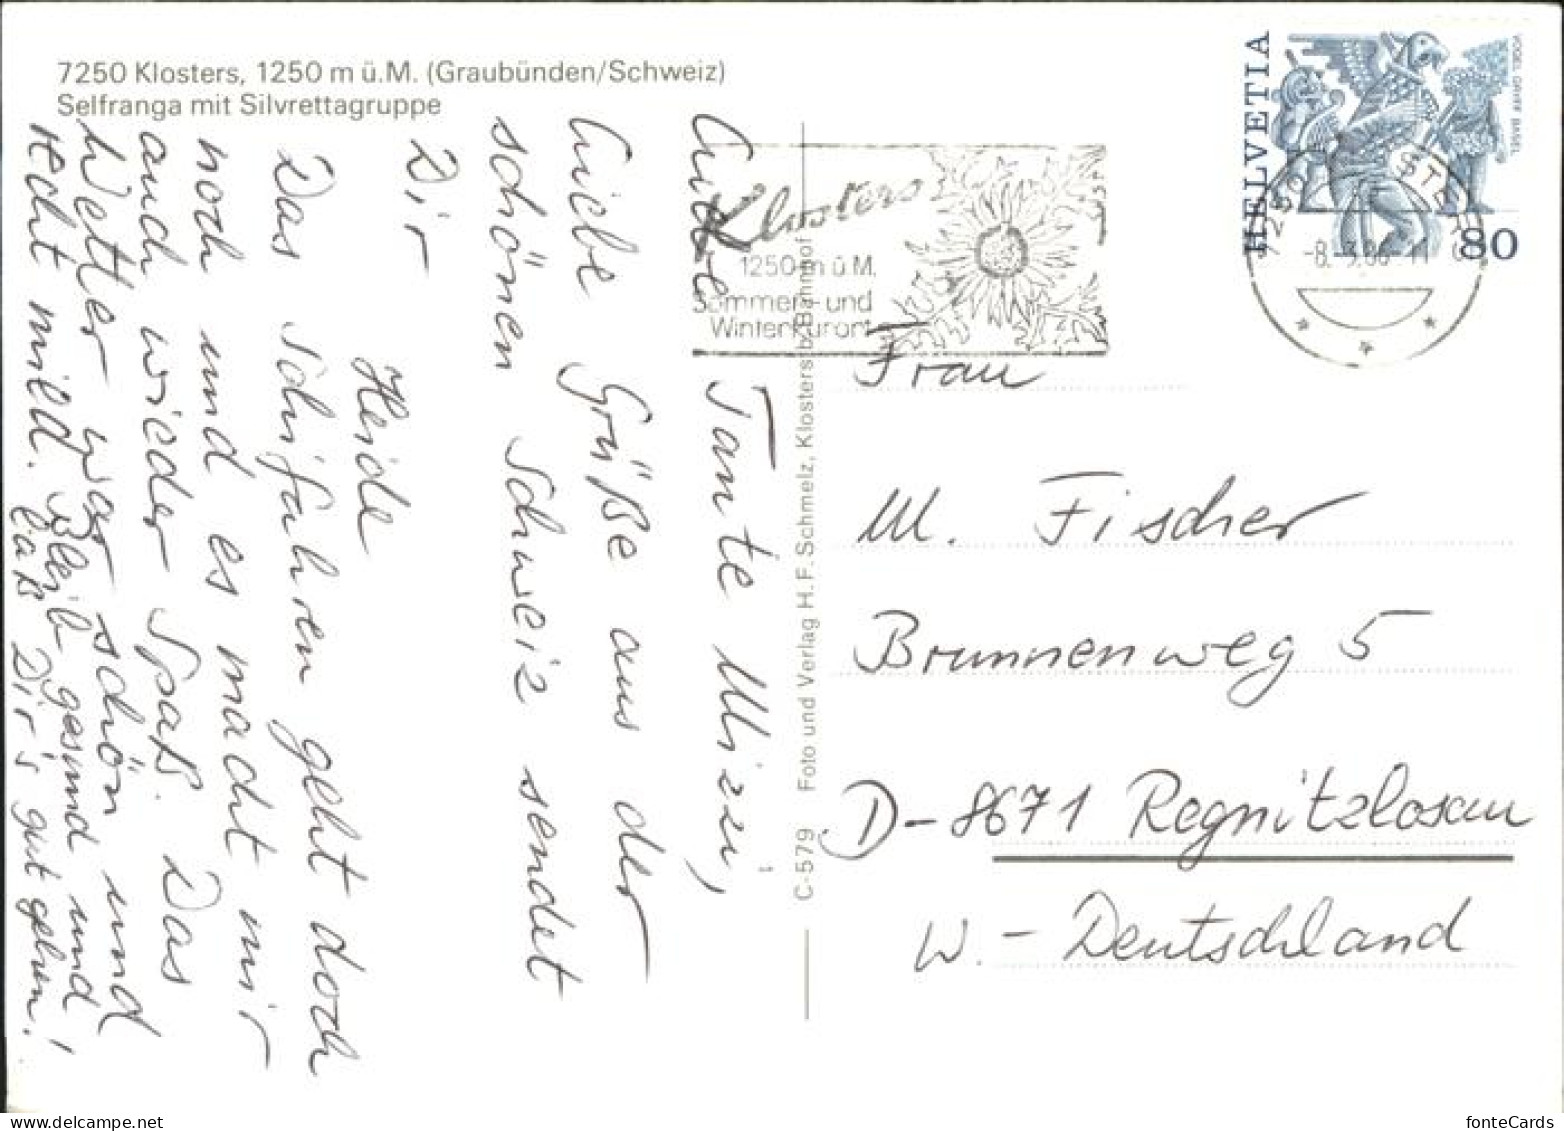 7250 Klosters, 1250 m ü.M. (Graubünden/Schweiz)
Selfranga mit Silvrettagruppe
Liebe Tante Mizzi,
Liebe Grüße aus der
schönen Schweiz sendet
Dir
Heide
Das Schifahren geht doch
noch und es macht mir
auch wieder Spaß. Das
Wetter war schön und
recht mild. Bleib gesund und
laß Dir's gut gehen!
C-579 Foto und Verlag H.F. Schmelz, Klosters b/Bahnhof
Klosters
1250 m ü.M.
Sommer- und
Winterkurort
HELVETIA
VOGEL GRYFF BASEL
80
-8.-3.86-11
Frau
M. Fischer
Brunnenweg 5
D-8671 Regnitzlosau
W.-Deutschland
fonteCards